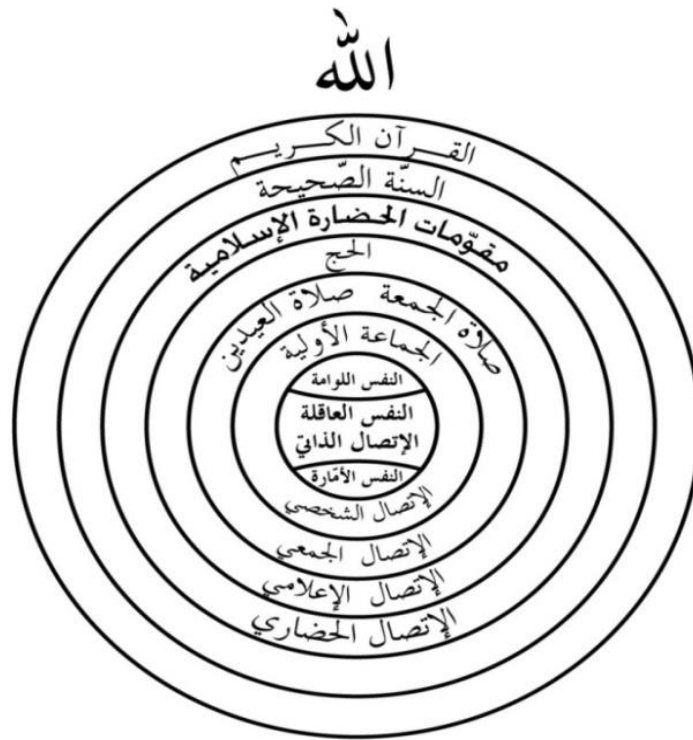 الله
القرآن الكريم
السنّة الصّحيحة
مقوّمات الحضارة الإسلامية
الحج
صلاة الجمعة صلاة العيدين
الجماعة الأولية
النفس اللوامة
النفس العاقلة
الإتصال الذاتيّ
النفس الأمّارة
الإتصال الشخصي
الإتصال الجمعي
الإتصال الإعلامي
الإتصال الحضاري